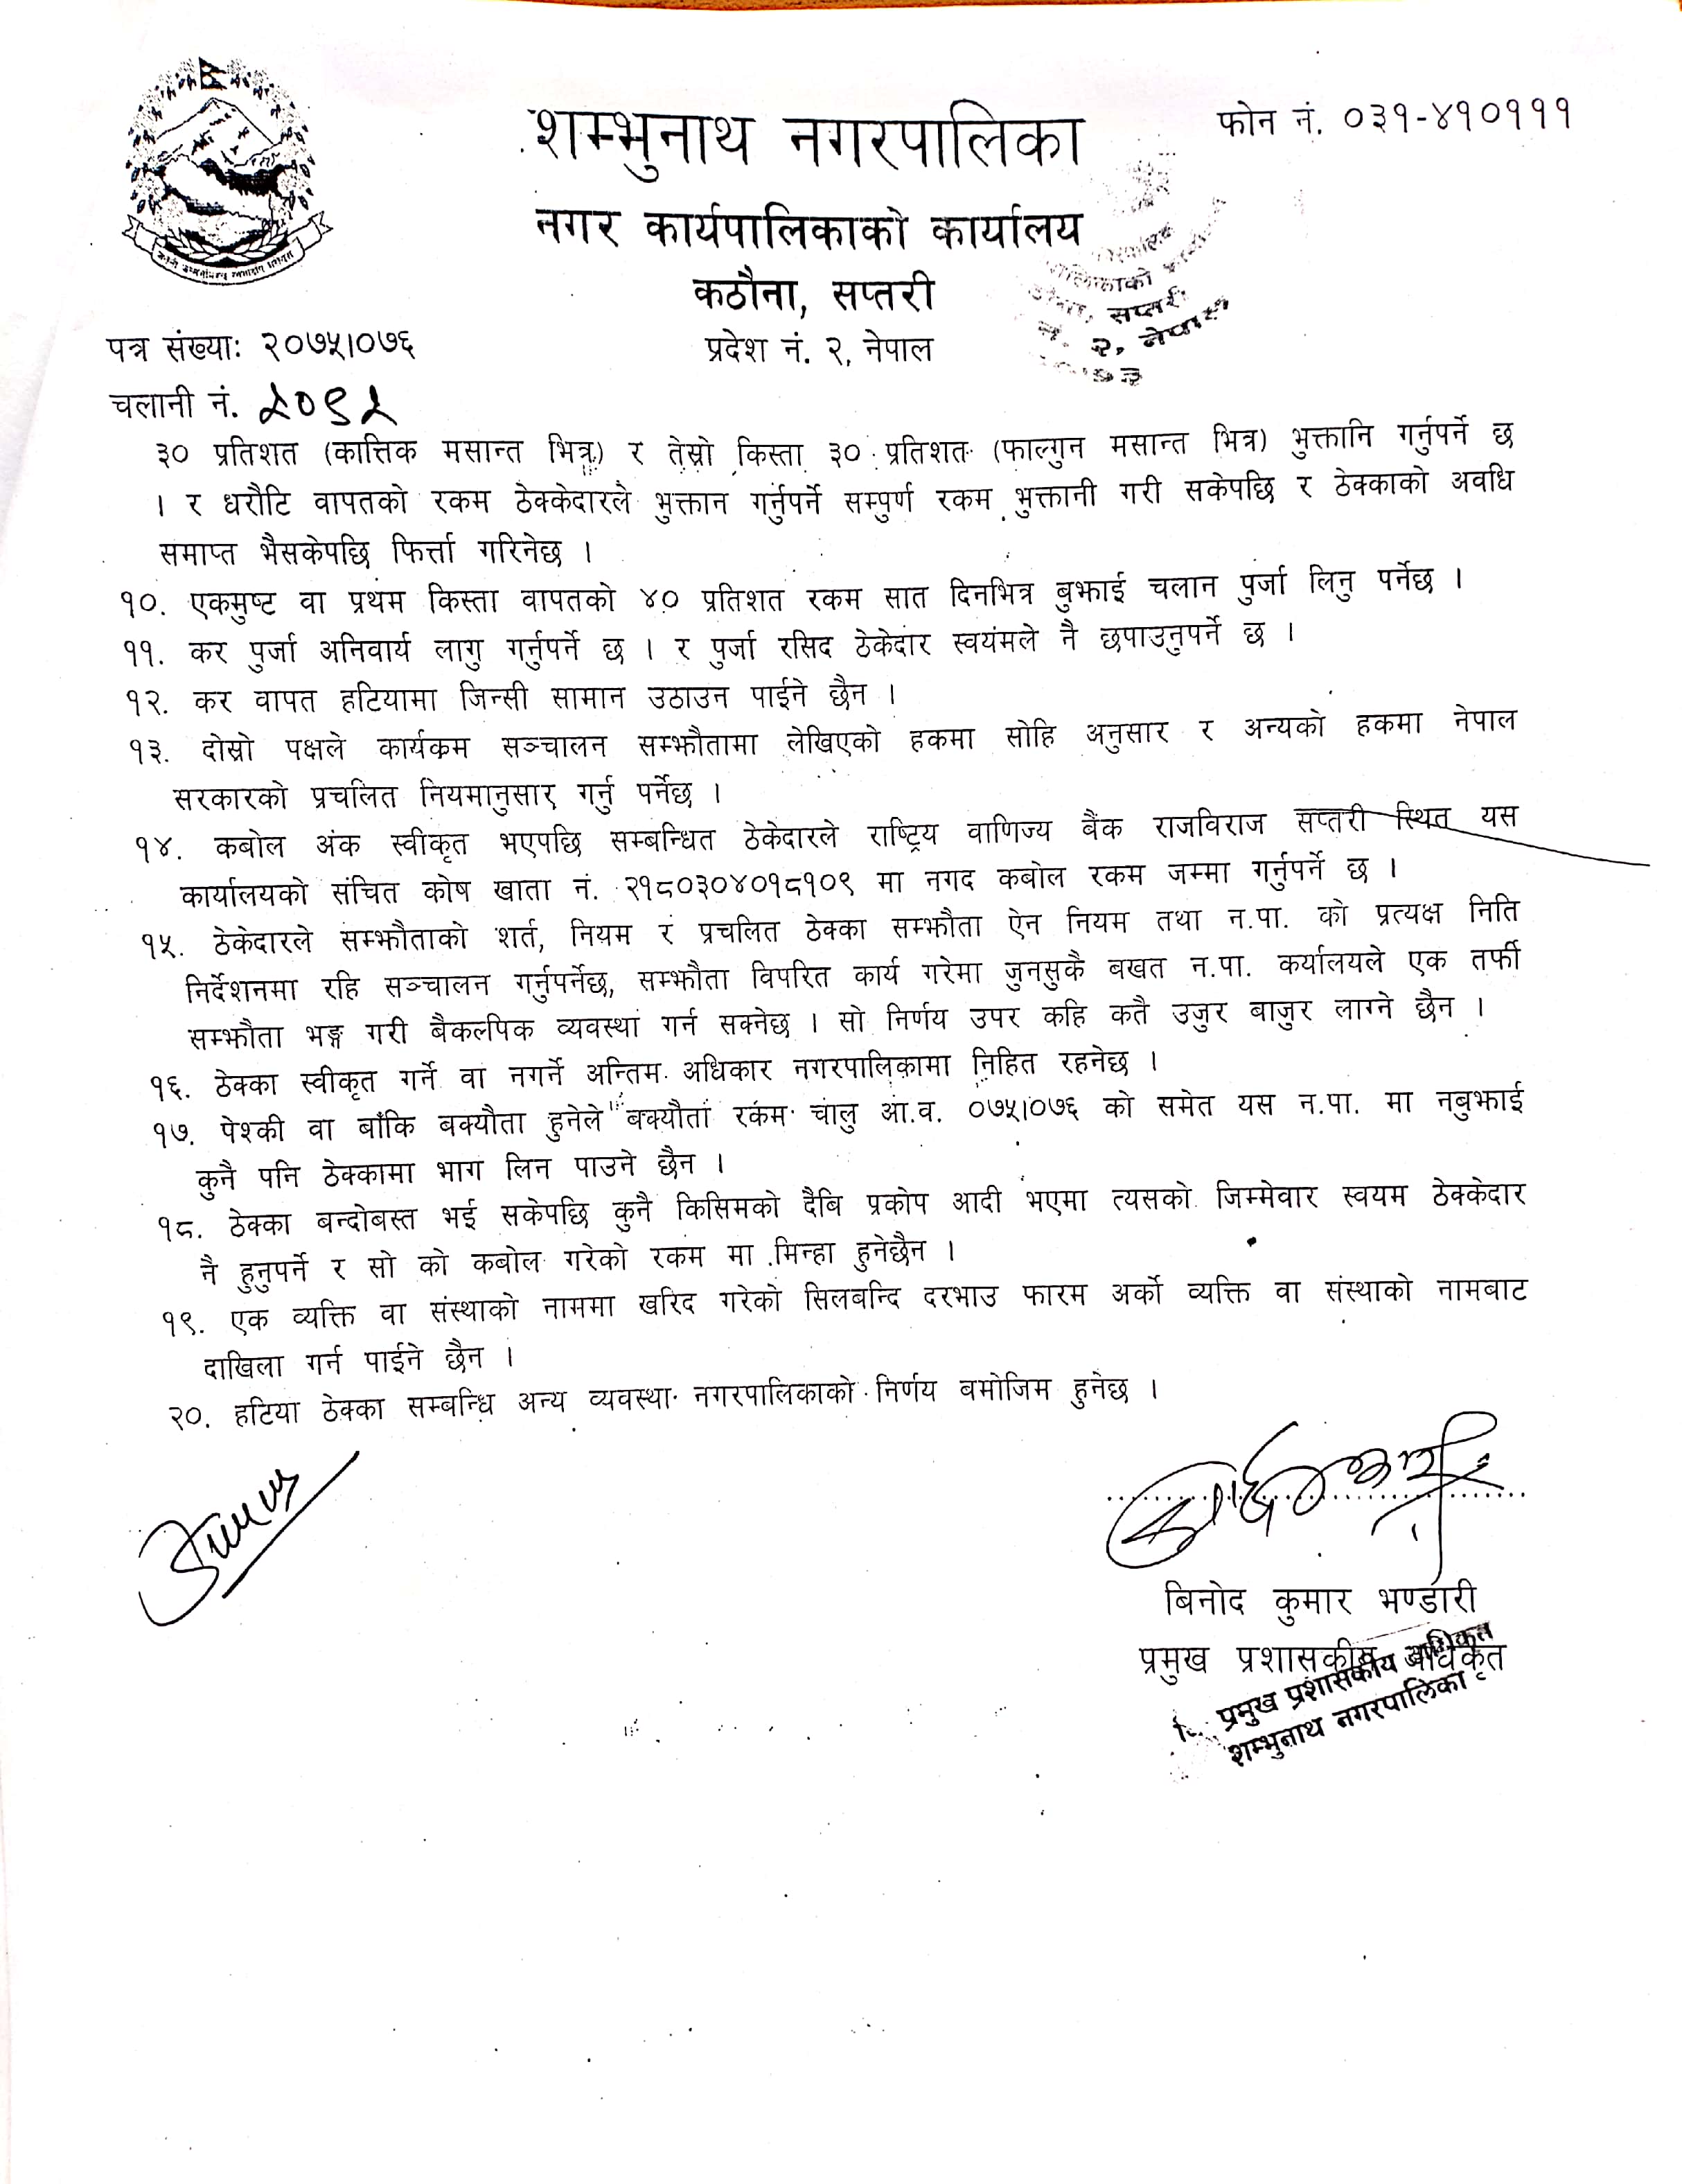 शम्भुनाथ नगरपालिका
फोन नं. ०३१-४१०१११
नगर कार्यपालिकाको कार्यालय
कठौना, सप्तरी
प्रदेश नं. २, नेपाल
पत्र संख्याः २०७५।०७६
चलानी नं.
पालिकाको
सप्तरी
नं. २, नेपाल
३० प्रतिशत (कात्तिक मसान्त भित्र) र तेस्रो किस्ता ३० प्रतिशत (फाल्गुन मसान्त भित्र) भुक्तानि गर्नुपर्ने छ
। र धरौटि वापतको रकम ठेक्केदारले भुक्तान गर्नुपर्ने सम्पुर्ण रकम भुक्तानी गरी सकेपछि र ठेक्काको अवधि
समाप्त भैसकेपछि फिर्त्ता गरिनेछ ।
१०. एकमुष्ट वा प्रथम किस्ता वापतको ४० प्रतिशत रकम सात दिनभित्र बुझाई चलान पुर्जा लिनु पर्नेछ ।
११. कर पुर्जा अनिवार्य लागु गर्नुपर्ने छ । र पुर्जा रसिद ठेकेदार स्वयंमले नै छपाउनुपर्ने छ ।
१२. कर वापत हटियामा जिन्सी सामान उठाउन पाईने छैन ।
१३. दोस्रो पक्षले कार्यक्रम सञ्चालन सम्झौतामा लेखिएको हकमा सोहि अनुसार र अन्यको हकमा नेपाल
सरकारको प्रचलित नियमानुसार गर्नु पर्नेछ ।
१४. कबोल अंक स्वीकृत भएपछि सम्बन्धित ठेकेदारले राष्ट्रिय वाणिज्य बैंक राजविराज सप्तरी स्थित यस
कार्यालयको संचित कोष खाता नं. २१८०३०४०१८१०९ मा नगद कबोल रकम जम्मा गर्नुपर्ने छ ।
१५. ठेकेदारले सम्झौताको शर्त, नियम र प्रचलित ठेक्का सम्झौता ऐन नियम तथा न.पा. को प्रत्यक्ष निति
निर्देशनमा रहि सञ्चालन गर्नुपर्नेछ, सम्झौता विपरित कार्य गरेमा जुनसुकै बखत न.पा. कर्यालयले एक तर्फी
सम्झौता भङ्ग गरी बैकल्पिक व्यवस्था गर्न सक्नेछ । सो निर्णय उपर कहि कतै उजुर बाजुर लाग्ने छैन ।
१६. ठेक्का स्वीकृत गर्ने वा नगर्ने अन्तिम अधिकार नगरपालिकामा निहित रहनेछ ।
१७. पेश्की वा बाँकि बक्यौता हुनेले बक्यौता रकम चालु आ.व. ०७५।०७६ को समेत यस न.पा. मा नबुझाई
कुनै पनि ठेक्कामा भाग लिन पाउने छैन ।
१८. ठेक्का बन्दोबस्त भई सकेपछि कुनै किसिमको दैबि प्रकोप आदी भएमा त्यसको जिम्मेवार स्वयम ठेक्केदार
नै हुनुपर्ने र सो को कबोल गरेको रकम मा मिन्हा हुनेछैन ।
१९. एक व्यक्ति वा संस्थाको नाममा खरिद गरेको सिलबन्दि दरभाउ फारम अर्को व्यक्ति वा संस्थाको नामबाट
दाखिला गर्न पाईने छैन ।
२०. हटिया ठेक्का सम्बन्धि अन्य व्यवस्था नगरपालिकाको निर्णय बमोजिम हुनेछ ।
बिनोद कुमार भण्डारी
प्रमुख प्रशासकीय अधिकृत
प्रमुख प्रशासकीय अधिकृत
शम्भुनाथ नगरपालिका